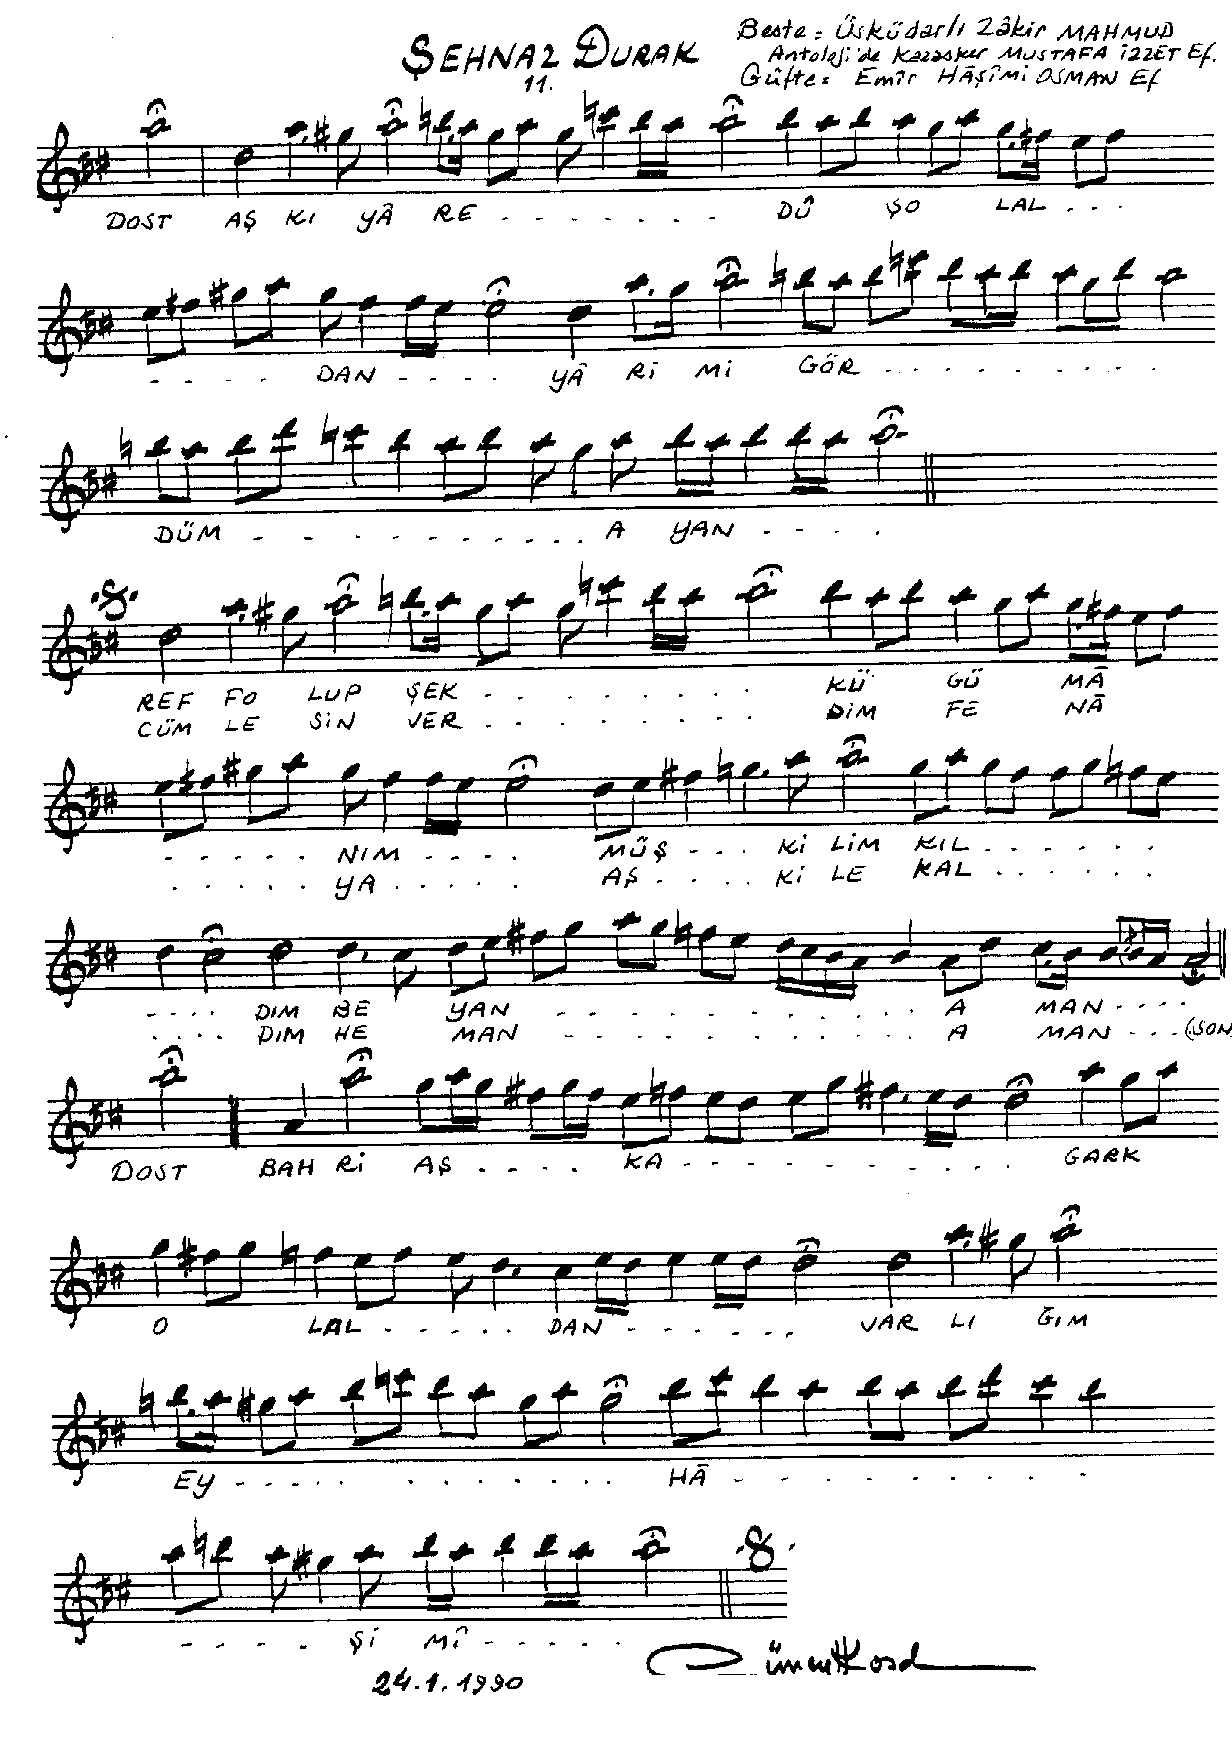 ŞEHNAZ DURAK
11.
Beste = Üsküdarlı Zâkir MAHMUD
Antoloji'de Kazasker MUSTAFA İZZET Ef.
Güfte = Emîr HÂŞİMİ OSMAN Ef
DOST AŞ KI YÂ RE - - - - - - - DÛ ŞO LAL - - -
- - - - DAN - - - - YÂ Rİ Mİ GÖR - - - - - - - - -
DÜM - - - - - - - - - - A YAN - - - -
REF FO LUP ŞEK - - - - - - - - KÜ GÜ MÂ
CÜM LE SİN VER - - - - - - - - DİM FE NÂ
- - - - - NIM - - - - MÜŞ - - - Kİ LİM KIL - - - - - -
- - - - - YA - - - - - AŞ - - - - Kİ LE KAL - - - - - -
- - - - DIM BE YAN - - - - - - - - - - A MAN - - - -
- - - - DIM HE MAN - - - - - - - - - - A MAN - - - (SON
DOST BAH Rİ AŞ - - - - KA - - - - - - - - - GARK
O LAL - - - - - DAN - - - - - - VAR LI ĞIM
EY - - - - - - - - - - - HÂ - - - - - - - - -
- - - - - Şİ Mİ - - - - -
24.1.1990